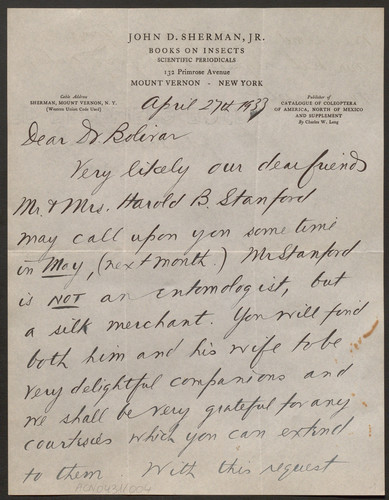 JOHN D. SHERMAN, JR.
BOOKS ON INSECTS
SCIENTIFIC PERIODICALS
132 Primrose Avenue
MOUNT VERNON - NEW YORK
Cable Address
SHERMAN, MOUNT VERNON, N. Y.
(Western Union Code Used)
Publisher of
CATALOGUE OF COLEOPTERA
OF AMERICA, NORTH OF MEXICO
AND SUPPLEMENT
By Charles W. Leng
April 27th 1933
Dear Dr Bolivar
Very likely our dear friends
Mr. & Mrs. Harold B. Stanford
may call upon you some time
in May, (next month.) Mr Stanford
is NOT an entomologist, but
a silk merchant. You will find
both him and his wife to be
very delightful companions and
we shall be very grateful for any
courtisies which you can extend
to them With this request
ACN0424/004